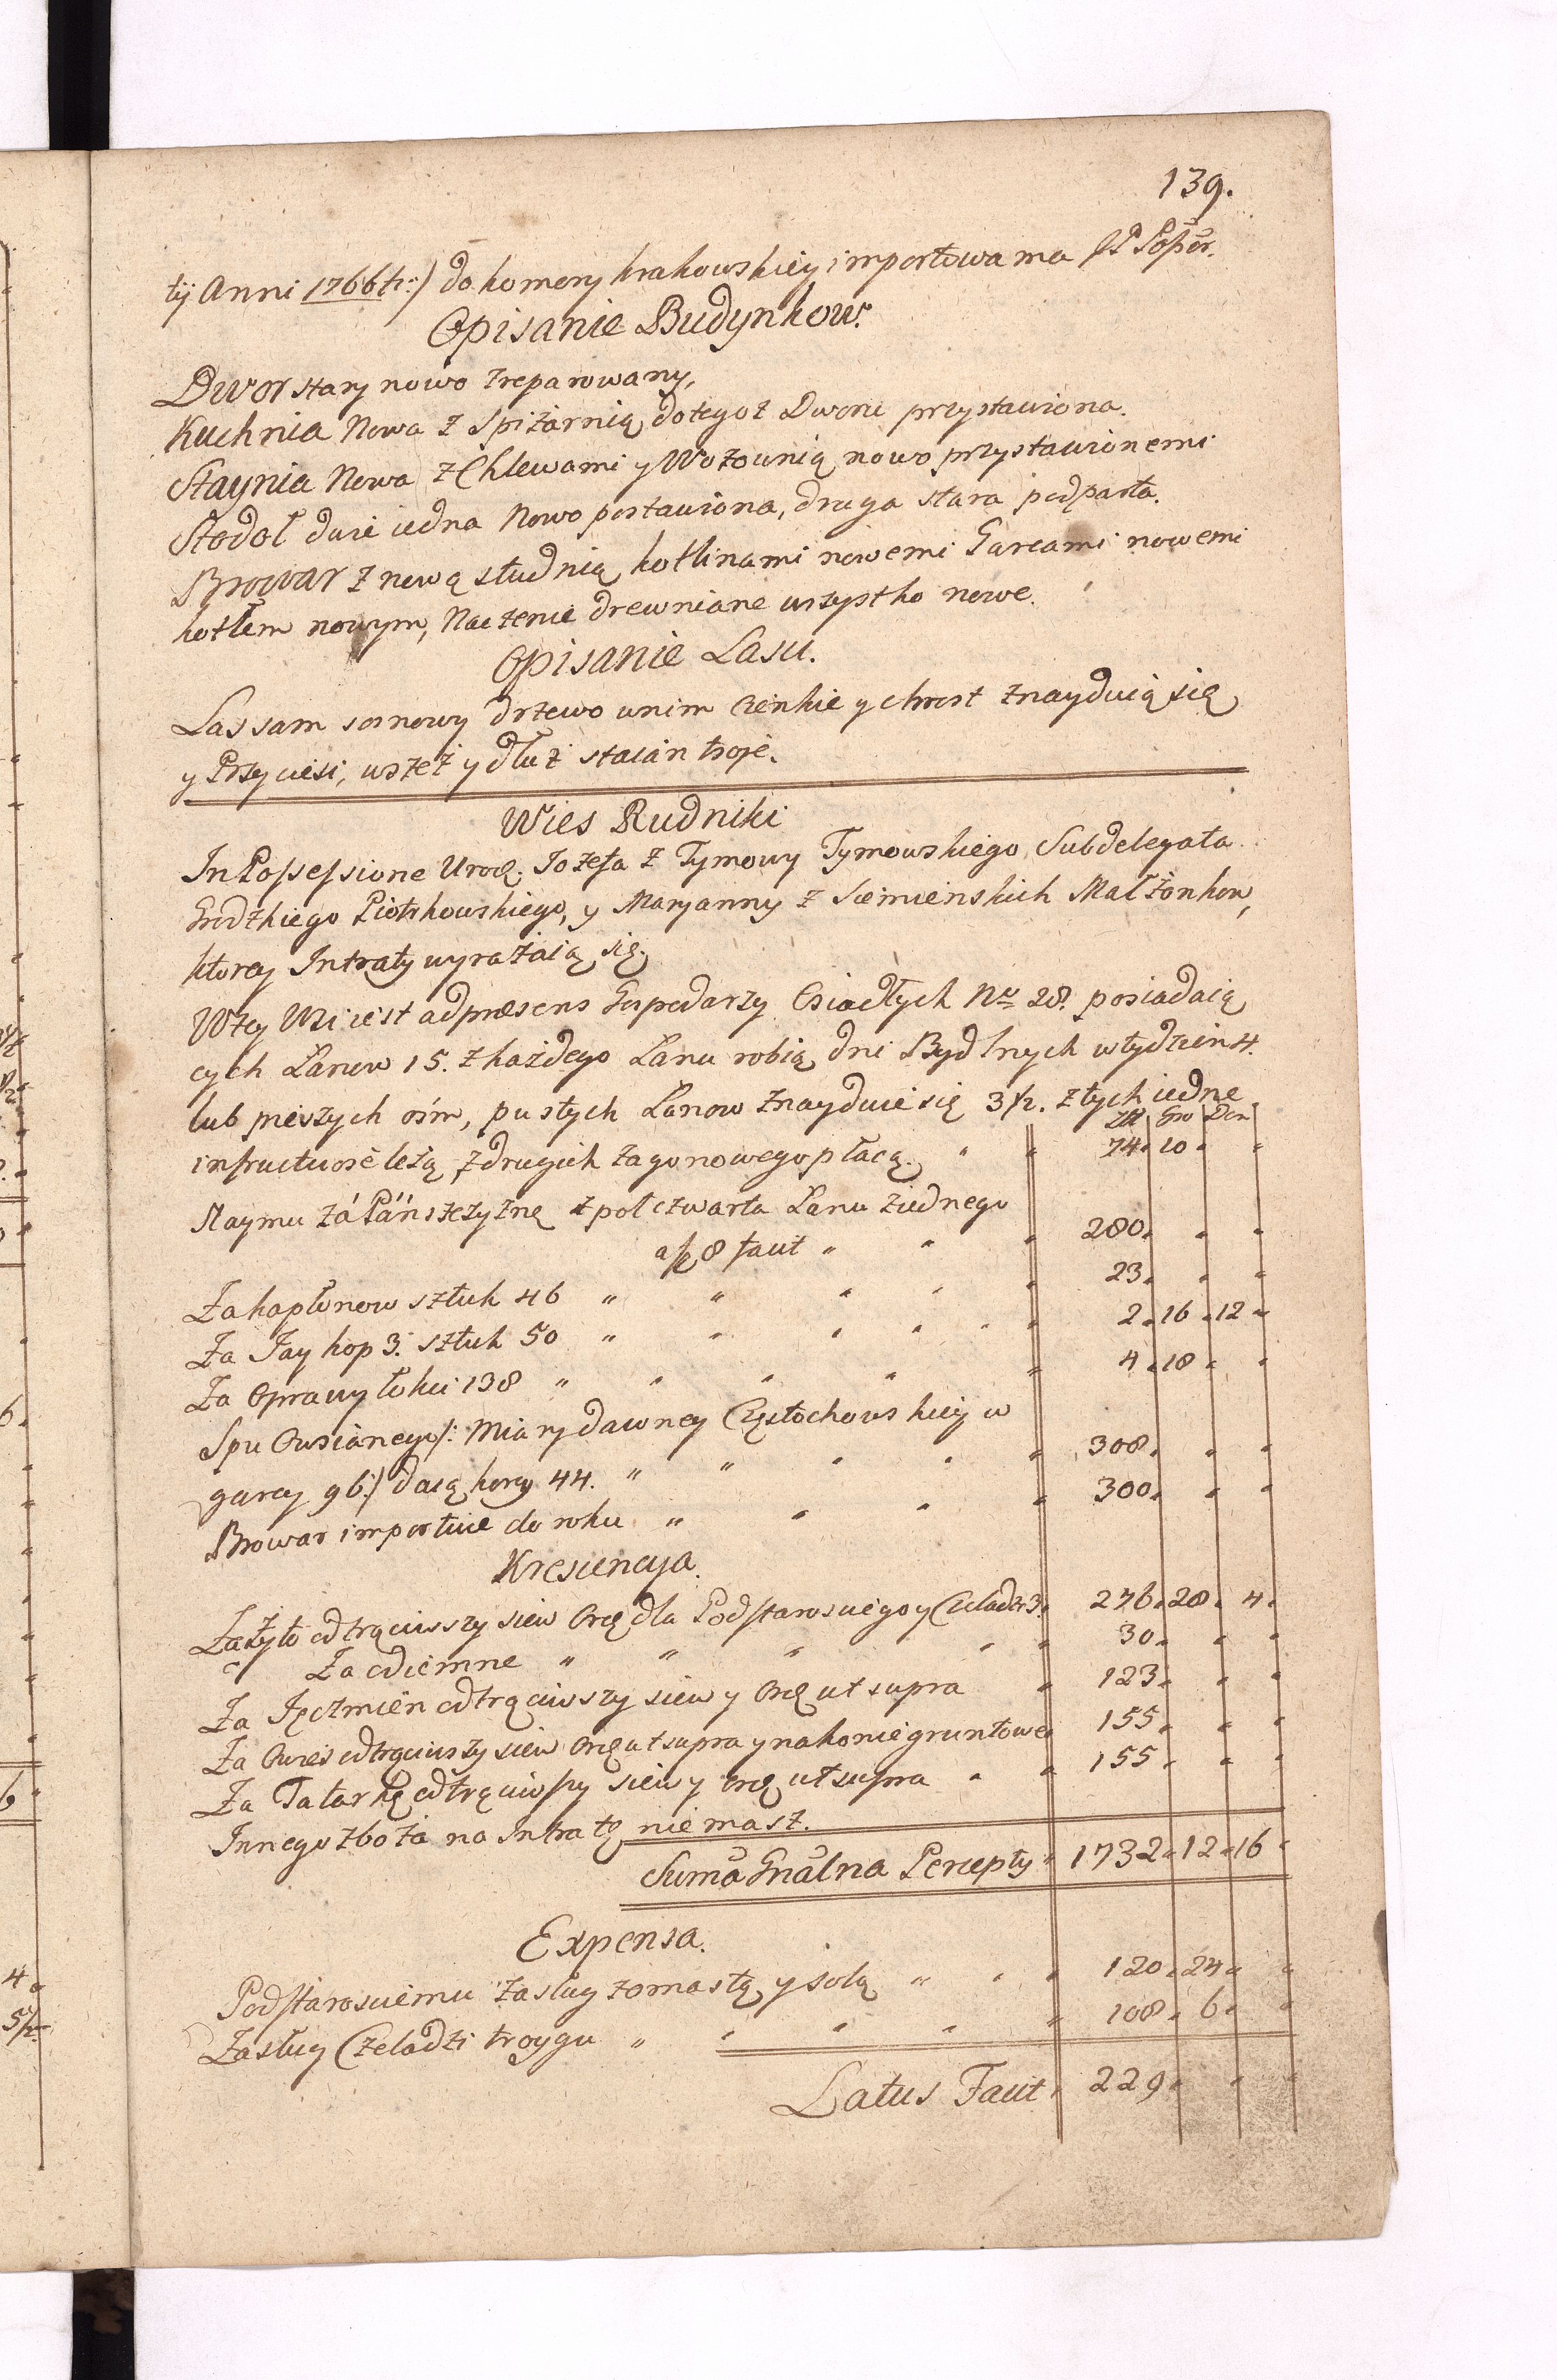 139.
tÿ Anni 1766ti:) do komory krakowskiey importowa ma JP Posser.
Opisanie Budynkow.
Dwor stary nowo zreparowany,
Kuchnia Nowa z Spiżarnią do tegoż Dworu przystawiona.
Staynia Nowa z Chlewami y Wozownią nowo przystawionemi
Stodoł dwie iedna Nowo postawiona, druga stara podparta.
Browar z nową studnią kotlinami nowemi Garcami nowemi
kotłem nowym, Naczenie drewniane wszystko nowe.
Opisanie Lasu.
Las sam sosnowy drzewo w nim Cienkie y chrost znayduią się
y Przyciesi, wszeż y dłuż staian troje.
Wies Rudniki
In Possessione Urod. Jozefa z Tymowy Tymowskiego Subdelegata
Grodzkiego Piotrkowskiego, y Maryanny z Siemienskich Małżonkow,
ktorey Intraty wyrażaią się.
W tey Wsi iest adpræsens Gospodarzy Osiadłych Nro 28. posiadaią
cych Lanow 15. z każdego Lanu robią dni Bydlnych w tydzien 4.
lub pieszych ośm, pustych Lanow znayduie się 3 1/2. z tych iedne
Złł Gro Den
infructuose leżą, z drugich zagonowego płacą. 74. 10
Naymu za Pańszczyznę z poł czwarta Lanu z iednego
a fl 8 facit 280.
Za kapłonow sztuk 46 23.
Za Jay kop 3. sztuk 50 2. 16 12
Za Oprawy łokci 138 4. 18
Spu Owsianego/: Miary dawney Częstochowskiey w
garcy 96:/ daią korcy 44. 308.
Browar importuie do roku 300.
Krescencya.
Za żyto odtrąciwszy siew Ord dla Podstarosciego y Czeladzi 3. 276. 28. 4.
Za odiemne 30.
Za Jęczmień odtrąciwszy siew y Ord ut supra 123.
Za Owies odtrąciwszy siew Ord ut supra y na konie gruntowe 155.
Za Tatarkę odtrąciwszy siew y Ord ut supra 155.
Innego zboża na Intratę niemasz.
Suma Gnalna Percepty 1732. 12. 16
Expensa.
Podstarosciemu zasług z omastą y solą 120. 24.
Zasług Czeladzi troygu 108. 6.
Latus Facit 229.